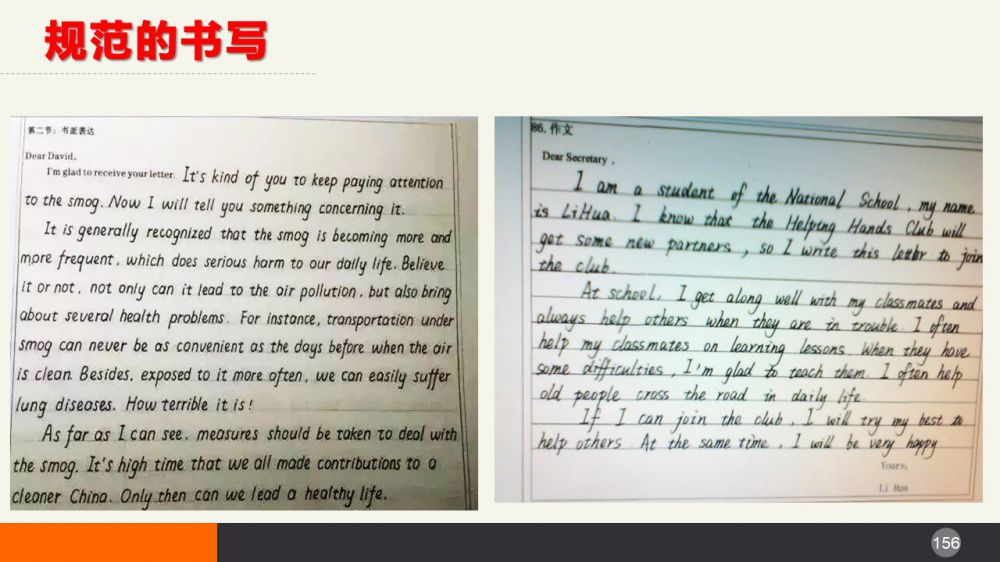 规范的书写
第二节：书面表达
Dear David,
I'm glad to receive your letter. It's kind of you to keep paying attention
to the smog. Now I will tell you something concerning it.
It is generally recognized that the smog is becoming more and
more frequent, which does serious harm to our daily life. Believe
it or not, not only can it lead to the air pollution, but also bring
about several health problems. For instance, transportation under
smog can never be as convenient as the days before when the air
is clean. Besides, exposed to it more often, we can easily suffer
lung diseases. How terrible it is!
As far as I can see, measures should be taken to deal with
the smog. It's high time that we all made contributions to a
cleaner China. Only then can we lead a healthy life.
86. 作文
Dear Secretary,
I am a student of the National School, my name
is Li Hua. I know that the Helping Hands Club will
get some new partners, so I write this letter to join
the club.
At school, I get along well with my classmates and
always help others when they are in trouble. I often
help my classmates on learning lessons. When they have
some difficulties, I'm glad to teach them. I often help
old people cross the road in daily life.
If I can join the club, I will try my best to
help others. At the same time, I will be very happy
Yours,
Li Hua
156